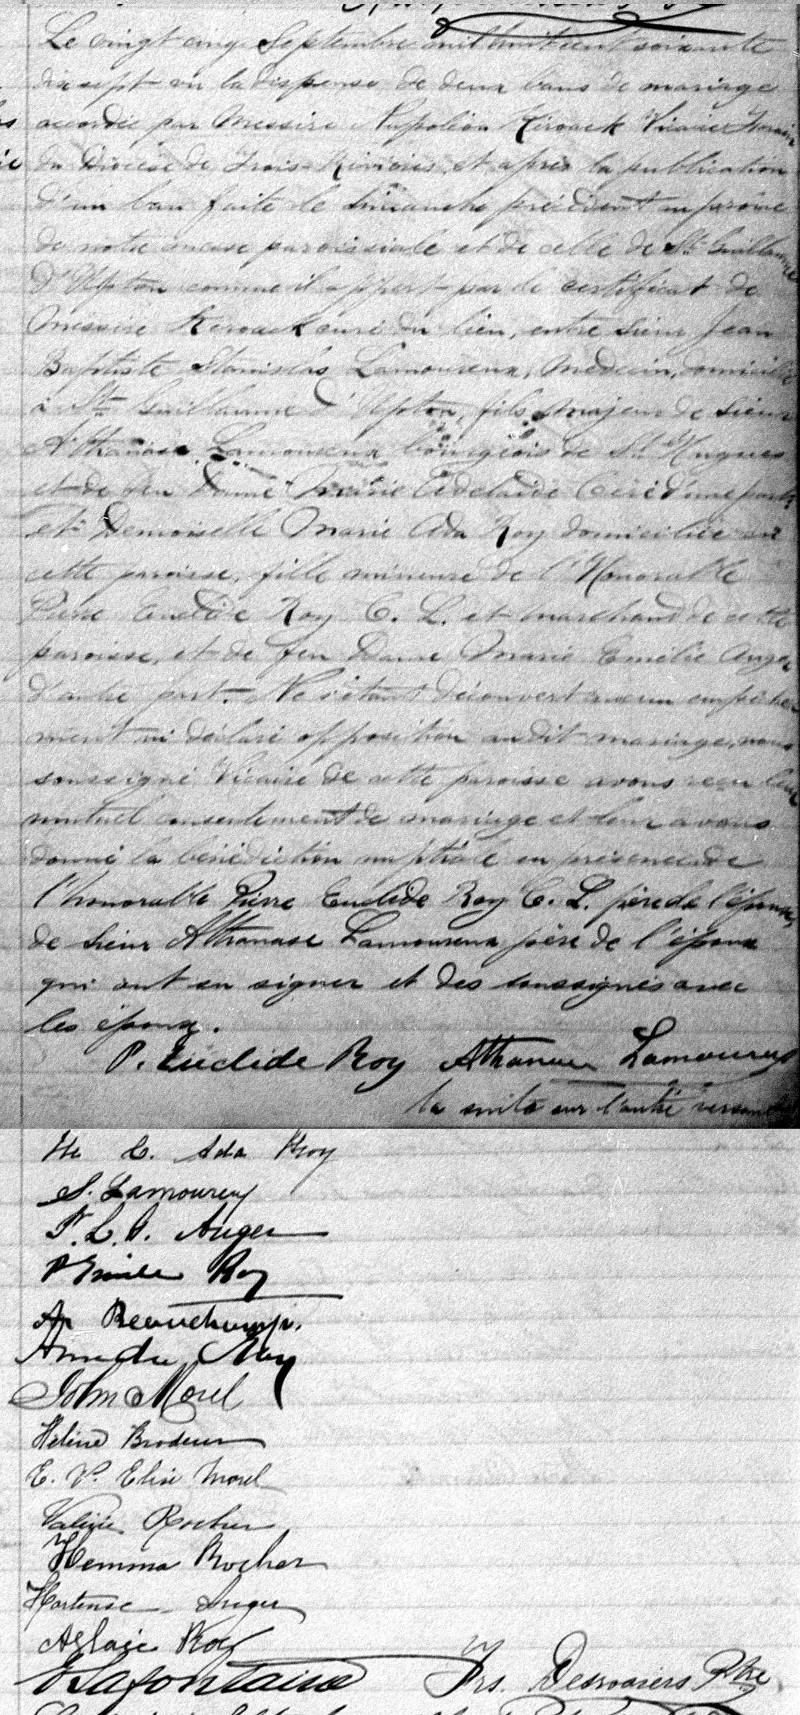 Le vingt cinq Septembre mil huit cent soixante
dix sept vu la dispense de deux bans de mariage
accordée par Messire Napoléon Kérouack Vicaire Forain
du Diocèse de Trois-Rivières, et après la publication
d'un ban faite le dimanche précédent au prône
de notre messe paroissiale et de celle de St Guillaume
d'Upton comme il appert par le certificat de
Messire Kérouack curé du lieu, entre Sieur Jean
Baptiste Stanislas Lamoureux, Médecin, domicilié
à St Guillaume d'Upton, fils majeur de Sieur
Athanase Lamoureux bourgeois de St Hugues
et de feu Dame Marie Adelaide Céré d'une part
et Demoiselle Marie Ada Roy domiciliée en
cette paroisse, fille mineure de l'Honorable
Pierre Euclide Roy C. L. et marchand de cette
paroisse, et de feu Dame Marie Emélie Auger
d'autre part. Ne s'étant découvert aucun empêche
ment ni déclaré opposition au dit mariage, nous
soussigné Vicaire de cette paroisse avons reçu leur
mutuel consentement de mariage et leur avons
donné la bénédiction nuptiale en présence de
l'honorable Pierre Euclide Roy C. L. père de l'épouse,
de Sieur Athanase Lamoureux père de l'époux
qui ont su signer et des soussignés avec
les époux.
P. Euclide Roy Athanase Lamoureux
la suite sur l'autre
C. Ada Roy
S. Lamoureux
F. L. Auger
P Emile Roy
Beauchamp.
Amedée Roy
John Morel
Héline Brodeur
E. V. Elise Morel
Valérie Rocher
Hemma Rocher
Hortense Auger
Aglaée Roy
Lafontaine Frs. Desrosiers Ptre